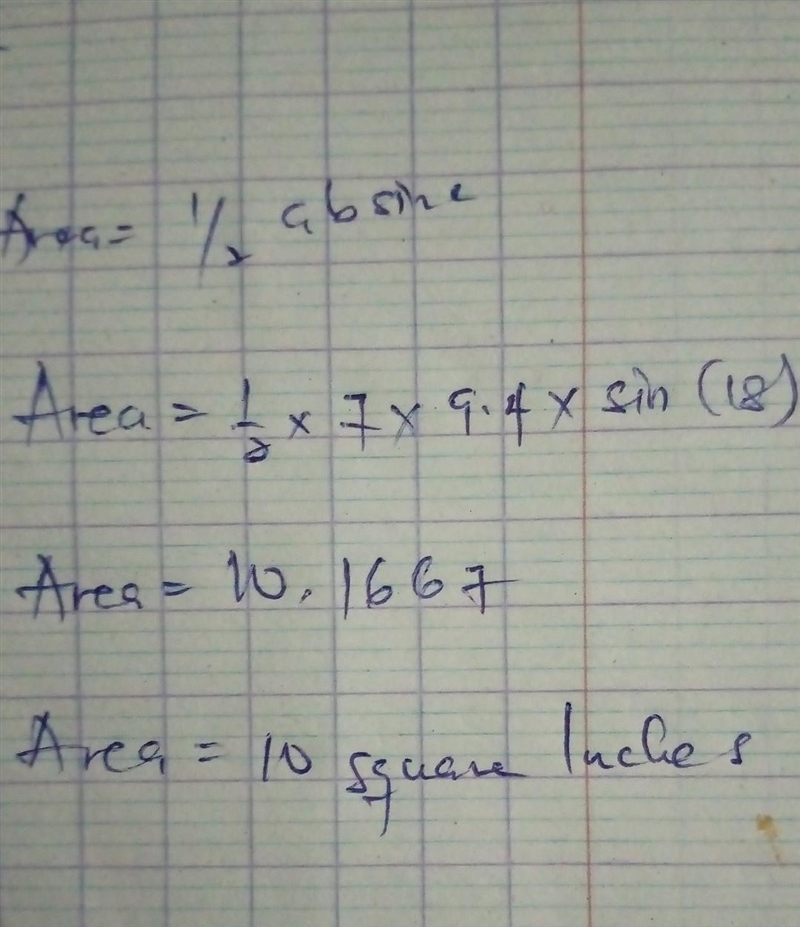 Area = 1/2 ab sin c
Area = 1/2 × 7 × 9.4 × sin (18)
Area = 10.1667
Area = 10 square Inches